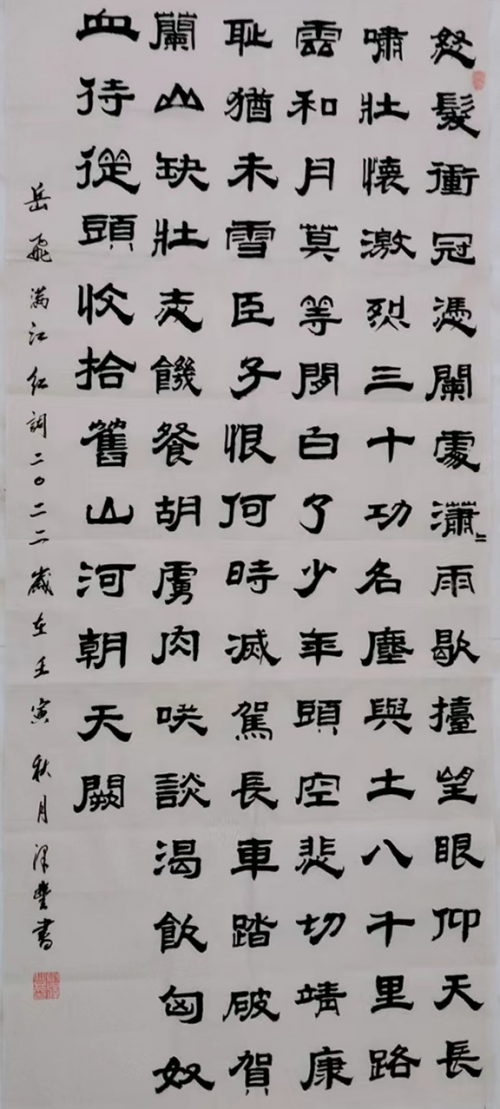 怒髮衝冠憑闌處瀟〻雨歇擡望眼仰天長
嘯壯懷激烈三十功名塵與土八千里路
雲和月莫等閒白了少年頭空悲切靖康
耻猶未雪臣子恨何時滅駕長車踏破賀
蘭山缺壯志饑餐胡虜肉咲談渴飲匈奴
血待從頭收拾舊山河朝天闕
岳飛满江红詞二〇二二歲在壬寅秋月泽豐書